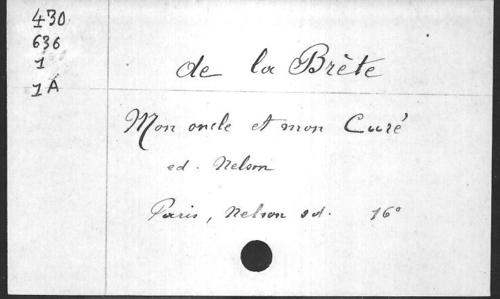 430
636
1
1 A
de la Brète
Mon oncle et mon Curé
ed. Nelson
Paris, Nelson sd. 16°